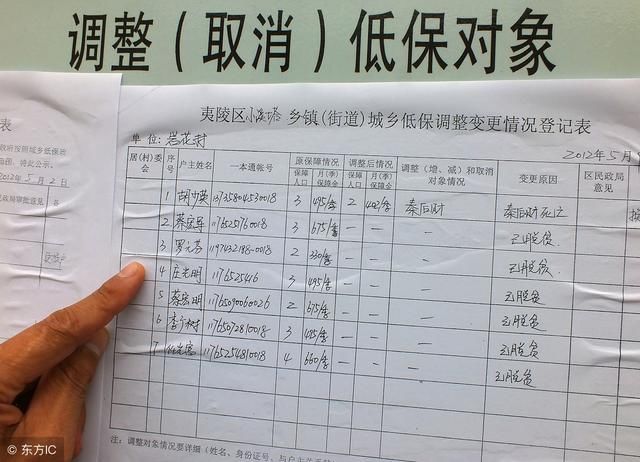 调整（取消）低保对象
表
政府按照城乡低保政
2012年5月2日
民政局审批意见
夷陵区小溪塔乡镇(街道)城乡低保调整变更情况登记表
单位:岩花村
2012年5月
居(村)委会 序号 户主姓名 一本通帐号 原保障情况 调整后情况 调整（增、减）和取消对象情况 变更原因 区民政局意见
保障人口 月(季)保障金 保障人口 月(季)保障金
1 3 495/季 2 402/季 秦后财 秦后财死亡
2 1176525760018 3 675/季 — — — 已脱贫
3 罗元芬 1197432188-0018 2 330/季 — — — 已脱贫
4 庄光明 1176525416 3 495/季 — — — 已脱贫
5 蔡宏明 1176509060026 2 675/季 — — — 已脱贫
6 11765072810018 3 495/季 — — — 已脱贫
7 11765254810018 4 660/季 — — — 已脱贫
注：调整对象情况要详细（姓名、身份证号、与户主关系
© 东方IC